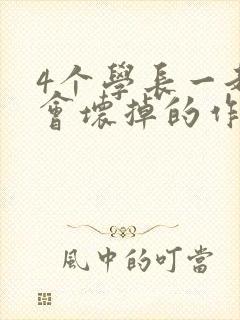 4个學長一
會壞掉的作
風中的叮當